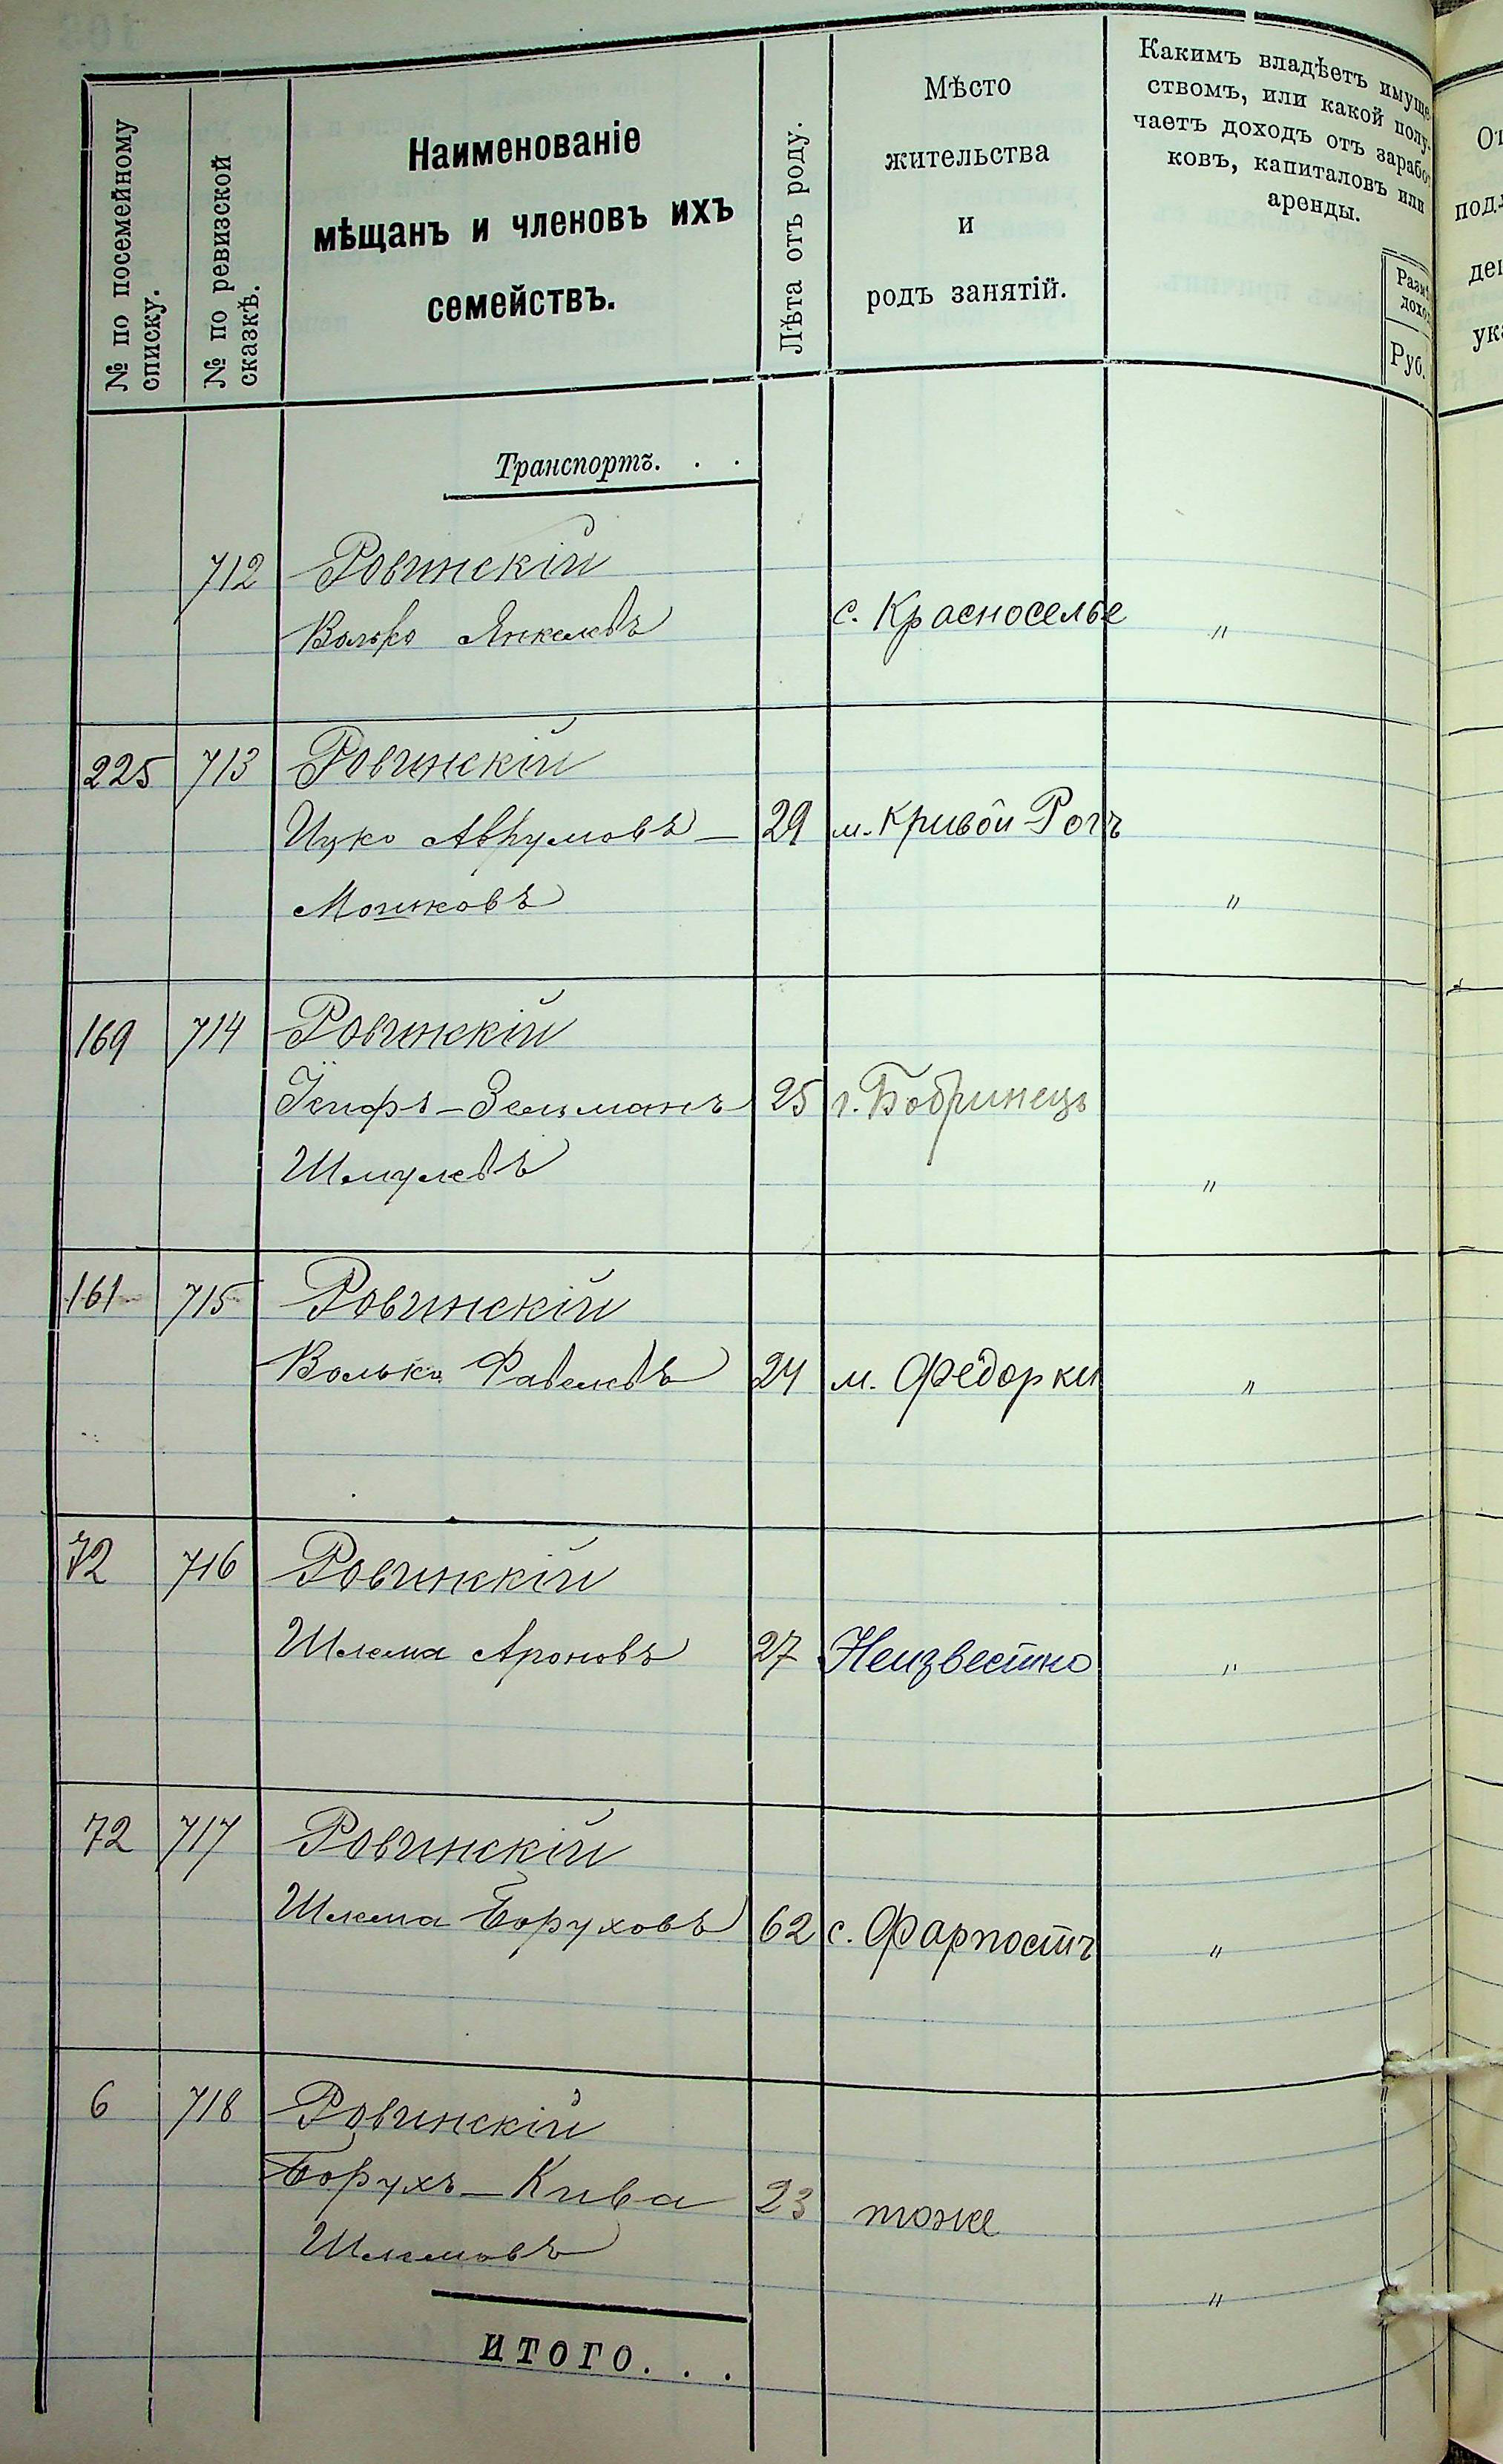 № по посемейному
списку.
№ по ревизской
сказкѣ.
Наименованіе
мѣщанъ и членовъ ихъ
семействъ.
Лѣта отъ роду.
Мѣсто
жительства
и
родъ занятій.
Какимъ владѣетъ имуще
ствомъ, или какой полу-
чаетъ доходъ отъ заработ
ковъ, капиталовъ или
аренды.
Руб.
Транспортъ. . .
712 Ровинскій
Волько Янкелевъ с. Красноселье "
225 713 Ровинскій
Ицко Аврумовъ — 29 м. Кривой Рогъ
Мошковъ "
169 714 Ровинскій
Зельманъ 25 г. Бобринецъ
Шмулевъ "
161 715 Ровинскій
Волько 24 м. Федорки "
72 716 Ровинскій
Шлема Ароновъ 27 Неизвестно "
72 717 Ровинскій
Шлема Боруховъ 62 с. Фарпостъ "
6 718 Ровинскій
Борухъ — Кива 23 тоже
Шлемовъ "
ИТОГО. . .